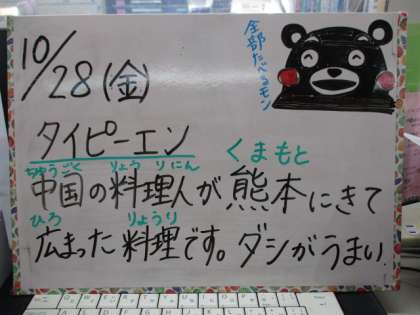 10/28(金)
全部たべるモン
タイピーエン
くまもと
ちゅうごく りょうりにん
中国の料理人が熊本にきて
ひろ りょうり
広まった料理です。ダシがうまい